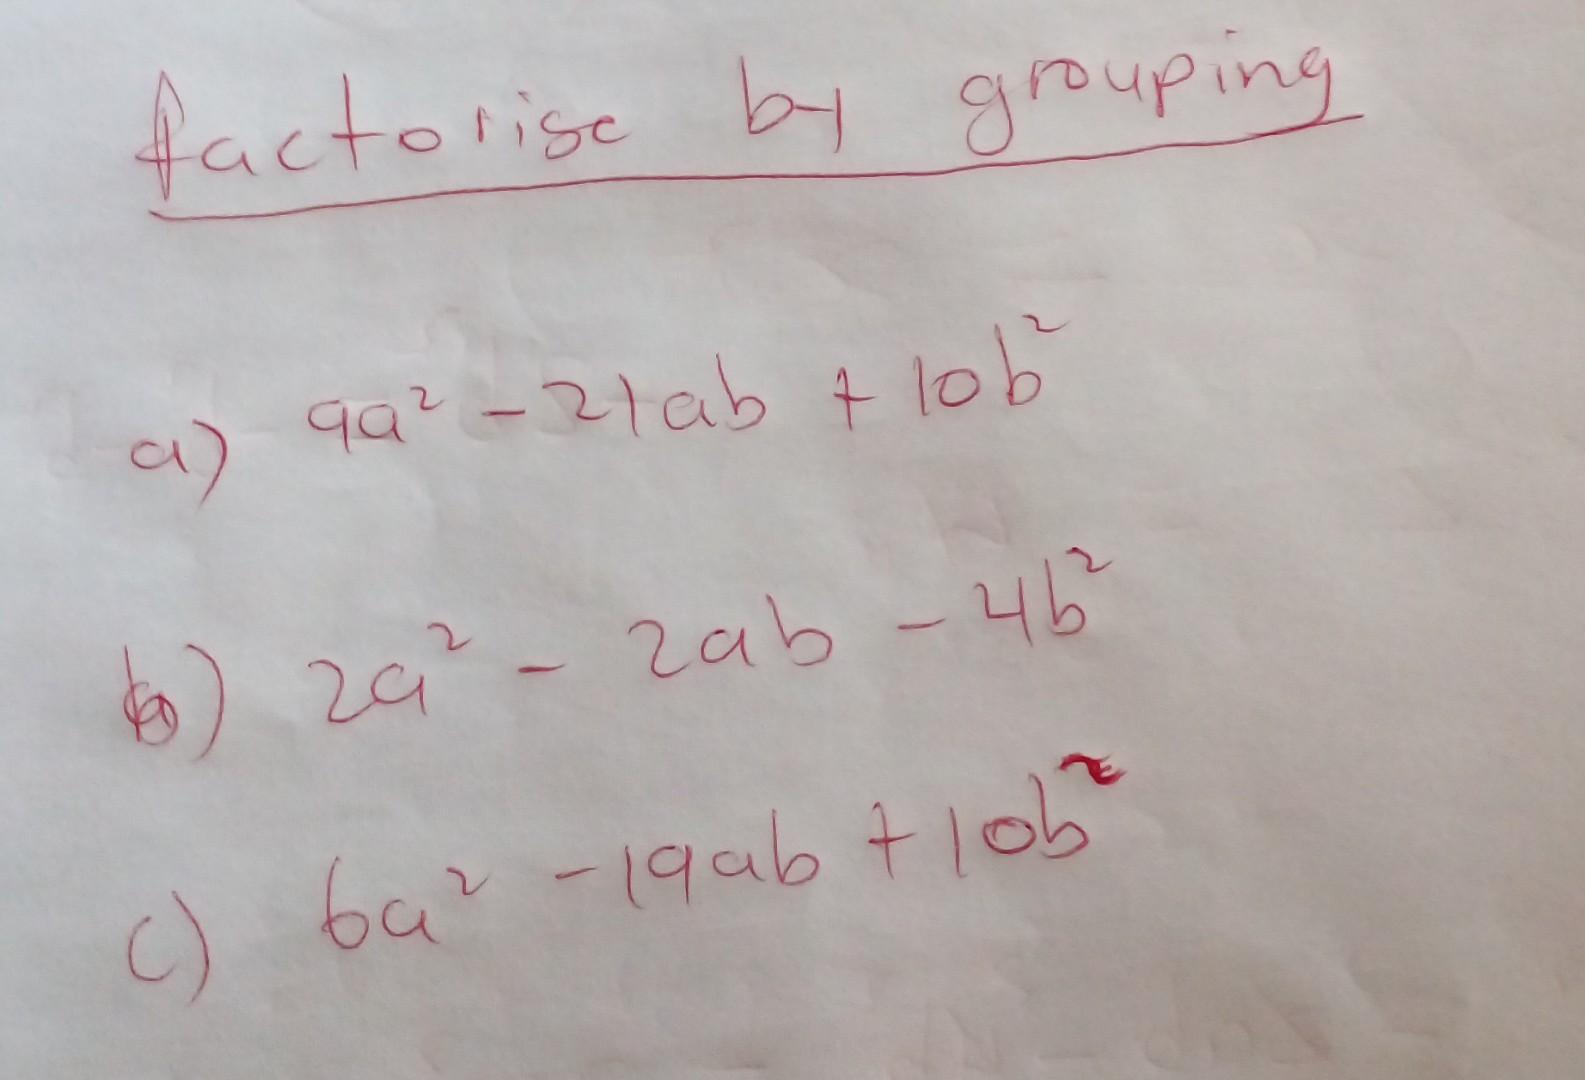 factorise by grouping
a) 9a² - 21ab + 10b²
b) 2a² - 2ab - 4b²
c) 6a² - 19ab + 10b²